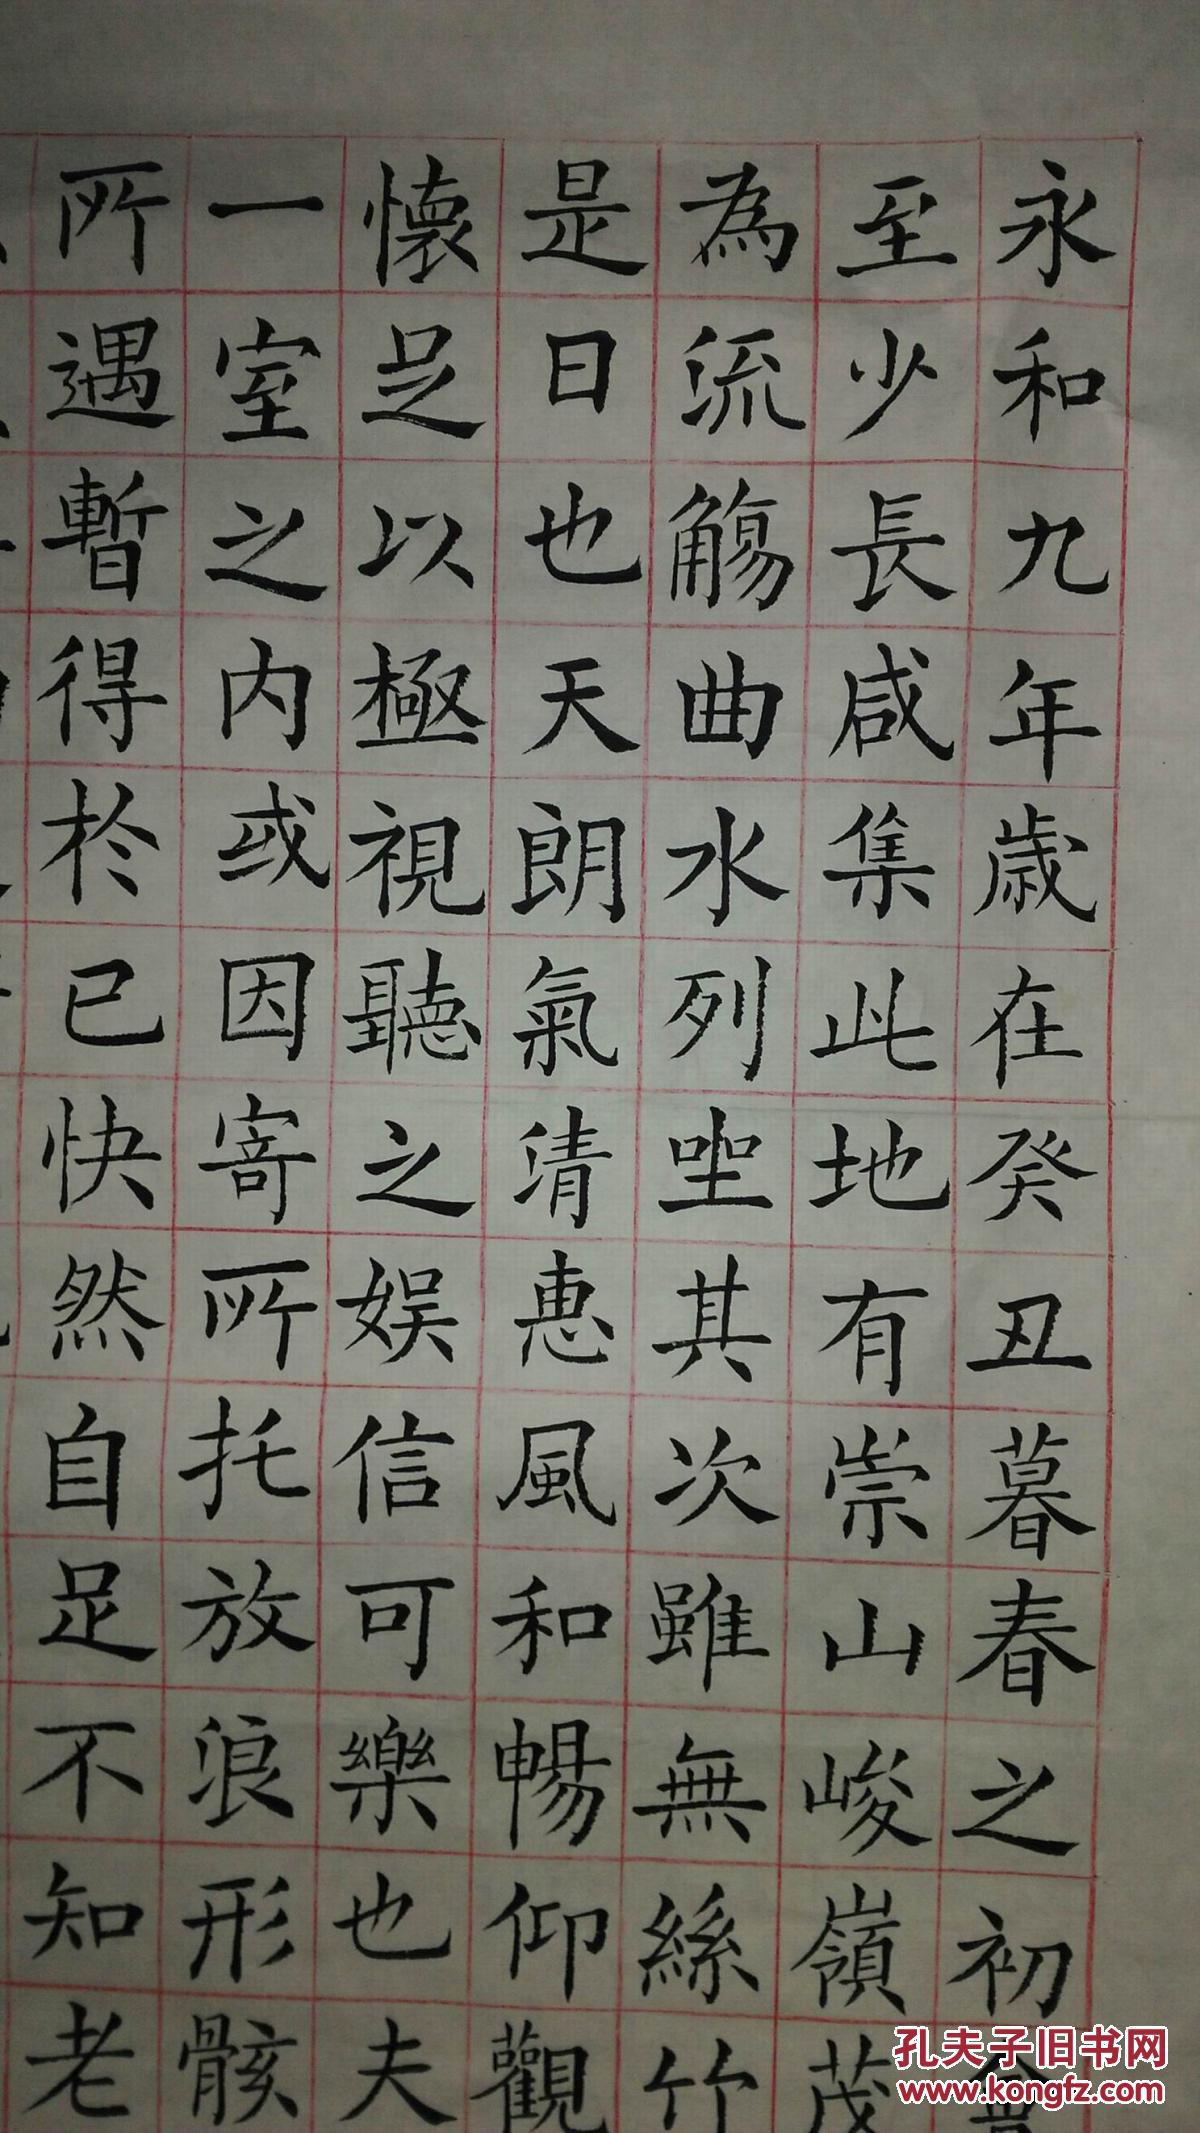 永和九年歲在癸丑暮春之初會
至少長咸集此地有崇山峻嶺茂
為流觴曲水列坐其次雖無絲竹
是日也天朗氣清惠風和暢仰觀
懷足以極視聽之娛信可樂也夫
一室之內或因寄所托放浪形骸
所遇暫得於己快然自足不知老
孔夫子旧书网
www.kongfz.com